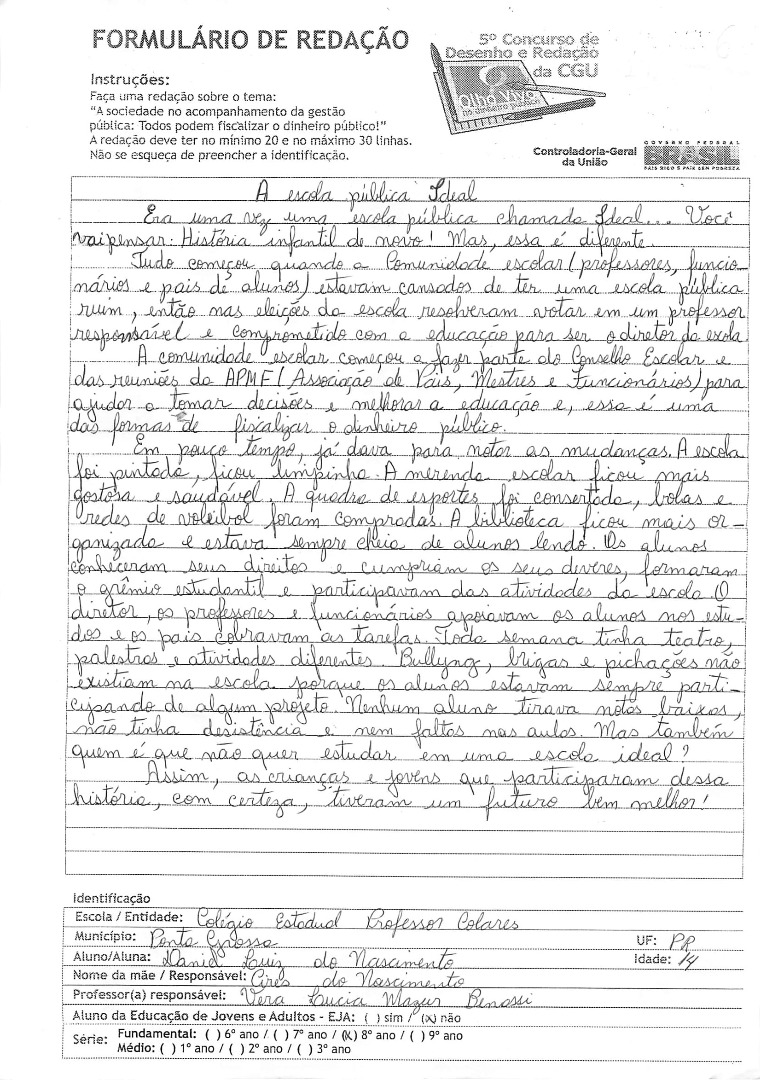 FORMULÁRIO DE REDAÇÃO
5º Concurso de
Desenho e Redação
da CGU
Olho Vivo
no dinheiro público
Instruções:
Faça uma redação sobre o tema:
"A sociedade no acompanhamento da gestão
pública: Todos podem fiscalizar o dinheiro público!"
A redação deve ter no mínimo 20 e no máximo 30 linhas.
Não se esqueça de preencher a identificação.
Controladoria-Geral
da União
GOVERNO FEDERAL
BRASIL
PAÍS RICO É PAÍS SEM POBREZA
A escola pública Ideal
Era uma vez uma escola pública chamada Ideal... Você
vai pensar: História infantil de novo! Mas, essa é diferente.
Tudo começou quando a Comunidade escolar (professores, funcio-
nários e pais de alunos) estavam cansados de ter uma escola pública
ruim, então nas eleições da escola resolveram votar em um professor
responsável e comprometido com a educação para ser o diretor da escola.
A comunidade escolar começou a fazer parte do Conselho Escolar e
das reuniões da APMF (Associação de Pais, Mestres e Funcionários) para
ajudar a tomar decisões e melhorar a educação e, essa é uma
das formas de fiscalizar o dinheiro público.
Em pouco tempo, já dava para notar as mudanças. A escola
foi pintada, ficou limpinha. A merenda escolar ficou mais
gostosa e saudável. A quadra de esportes foi consertada, bolas e
redes de voleibol foram compradas. A biblioteca ficou mais or-
ganizada e estava sempre cheia de alunos lendo. Os alunos
conheceram seus direitos e cumpriam os seus deveres, formaram
o grêmio estudantil e participavam das atividades da escola. O
diretor, os professores e funcionários apoiavam os alunos nos estu-
dos e os pais cobravam as tarefas. Toda semana tinha teatro,
palestras e atividades diferentes. Bullyng, brigas e pichações não
existiam na escola porque os alunos estavam sempre parti-
cipando de algum projeto. Nenhum aluno tirava notas baixas,
não tinha desistência e nem faltas nas aulas. Mas também
quem é que não quer estudar em uma escola ideal?
Assim, as crianças e jovens que participaram dessa
história, com certeza, tiveram um futuro bem melhor!
Identificação
Escola / Entidade: Colégio Estadual Professor Colares
Município: Ponta Grossa UF: PR
Aluno/Aluna: Daniel Luiz do Nascimento Idade: 14
Nome da mãe / Responsável: Cires do Nascimento
Professor(a) responsável: Vera Lucia Mazur Benassi
Aluno da Educação de Jovens e Adultos - EJA: ( ) sim / (x) não
Série: Fundamental: ( ) 6º ano / ( ) 7º ano / (x) 8º ano / ( ) 9º ano
Médio: ( ) 1º ano / ( ) 2º ano / ( ) 3º ano